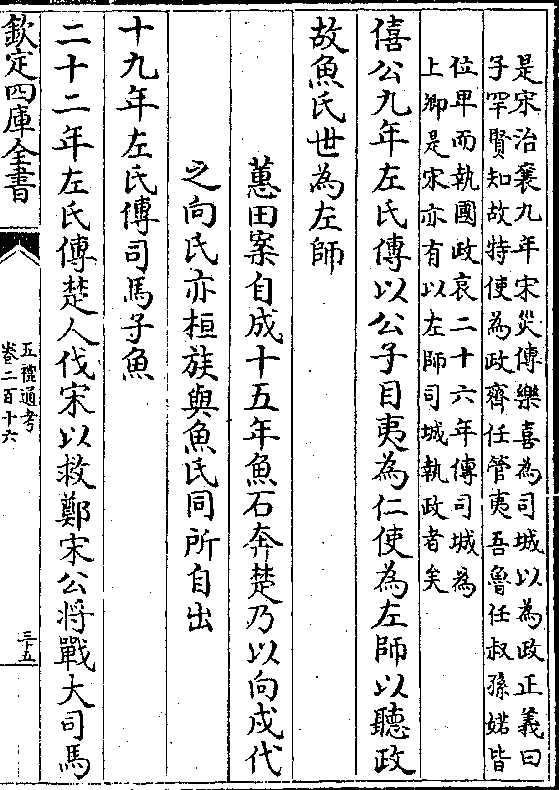 是宋治襄九年宋災傳樂喜為司城以為政正義曰
子罕賢知故特使為政齊任管夷吾魯任叔孫婼皆
位卑而執國政哀二十六年傳司城為
上卿是宋亦有以左師司城執政者矣
僖公九年左氏傳以公子目夷為仁使為左師以聽政
故魚氏世為左師
蕙田案自成十五年魚石奔楚乃以向戌代
之向氏亦桓族與魚氏同所自出
十九年左氏傳司馬子魚
二十二年左氏傳楚人伐宋以救鄭宋公將戰大司馬
欽定四庫全書
五禮通考
卷二百十六
三十五